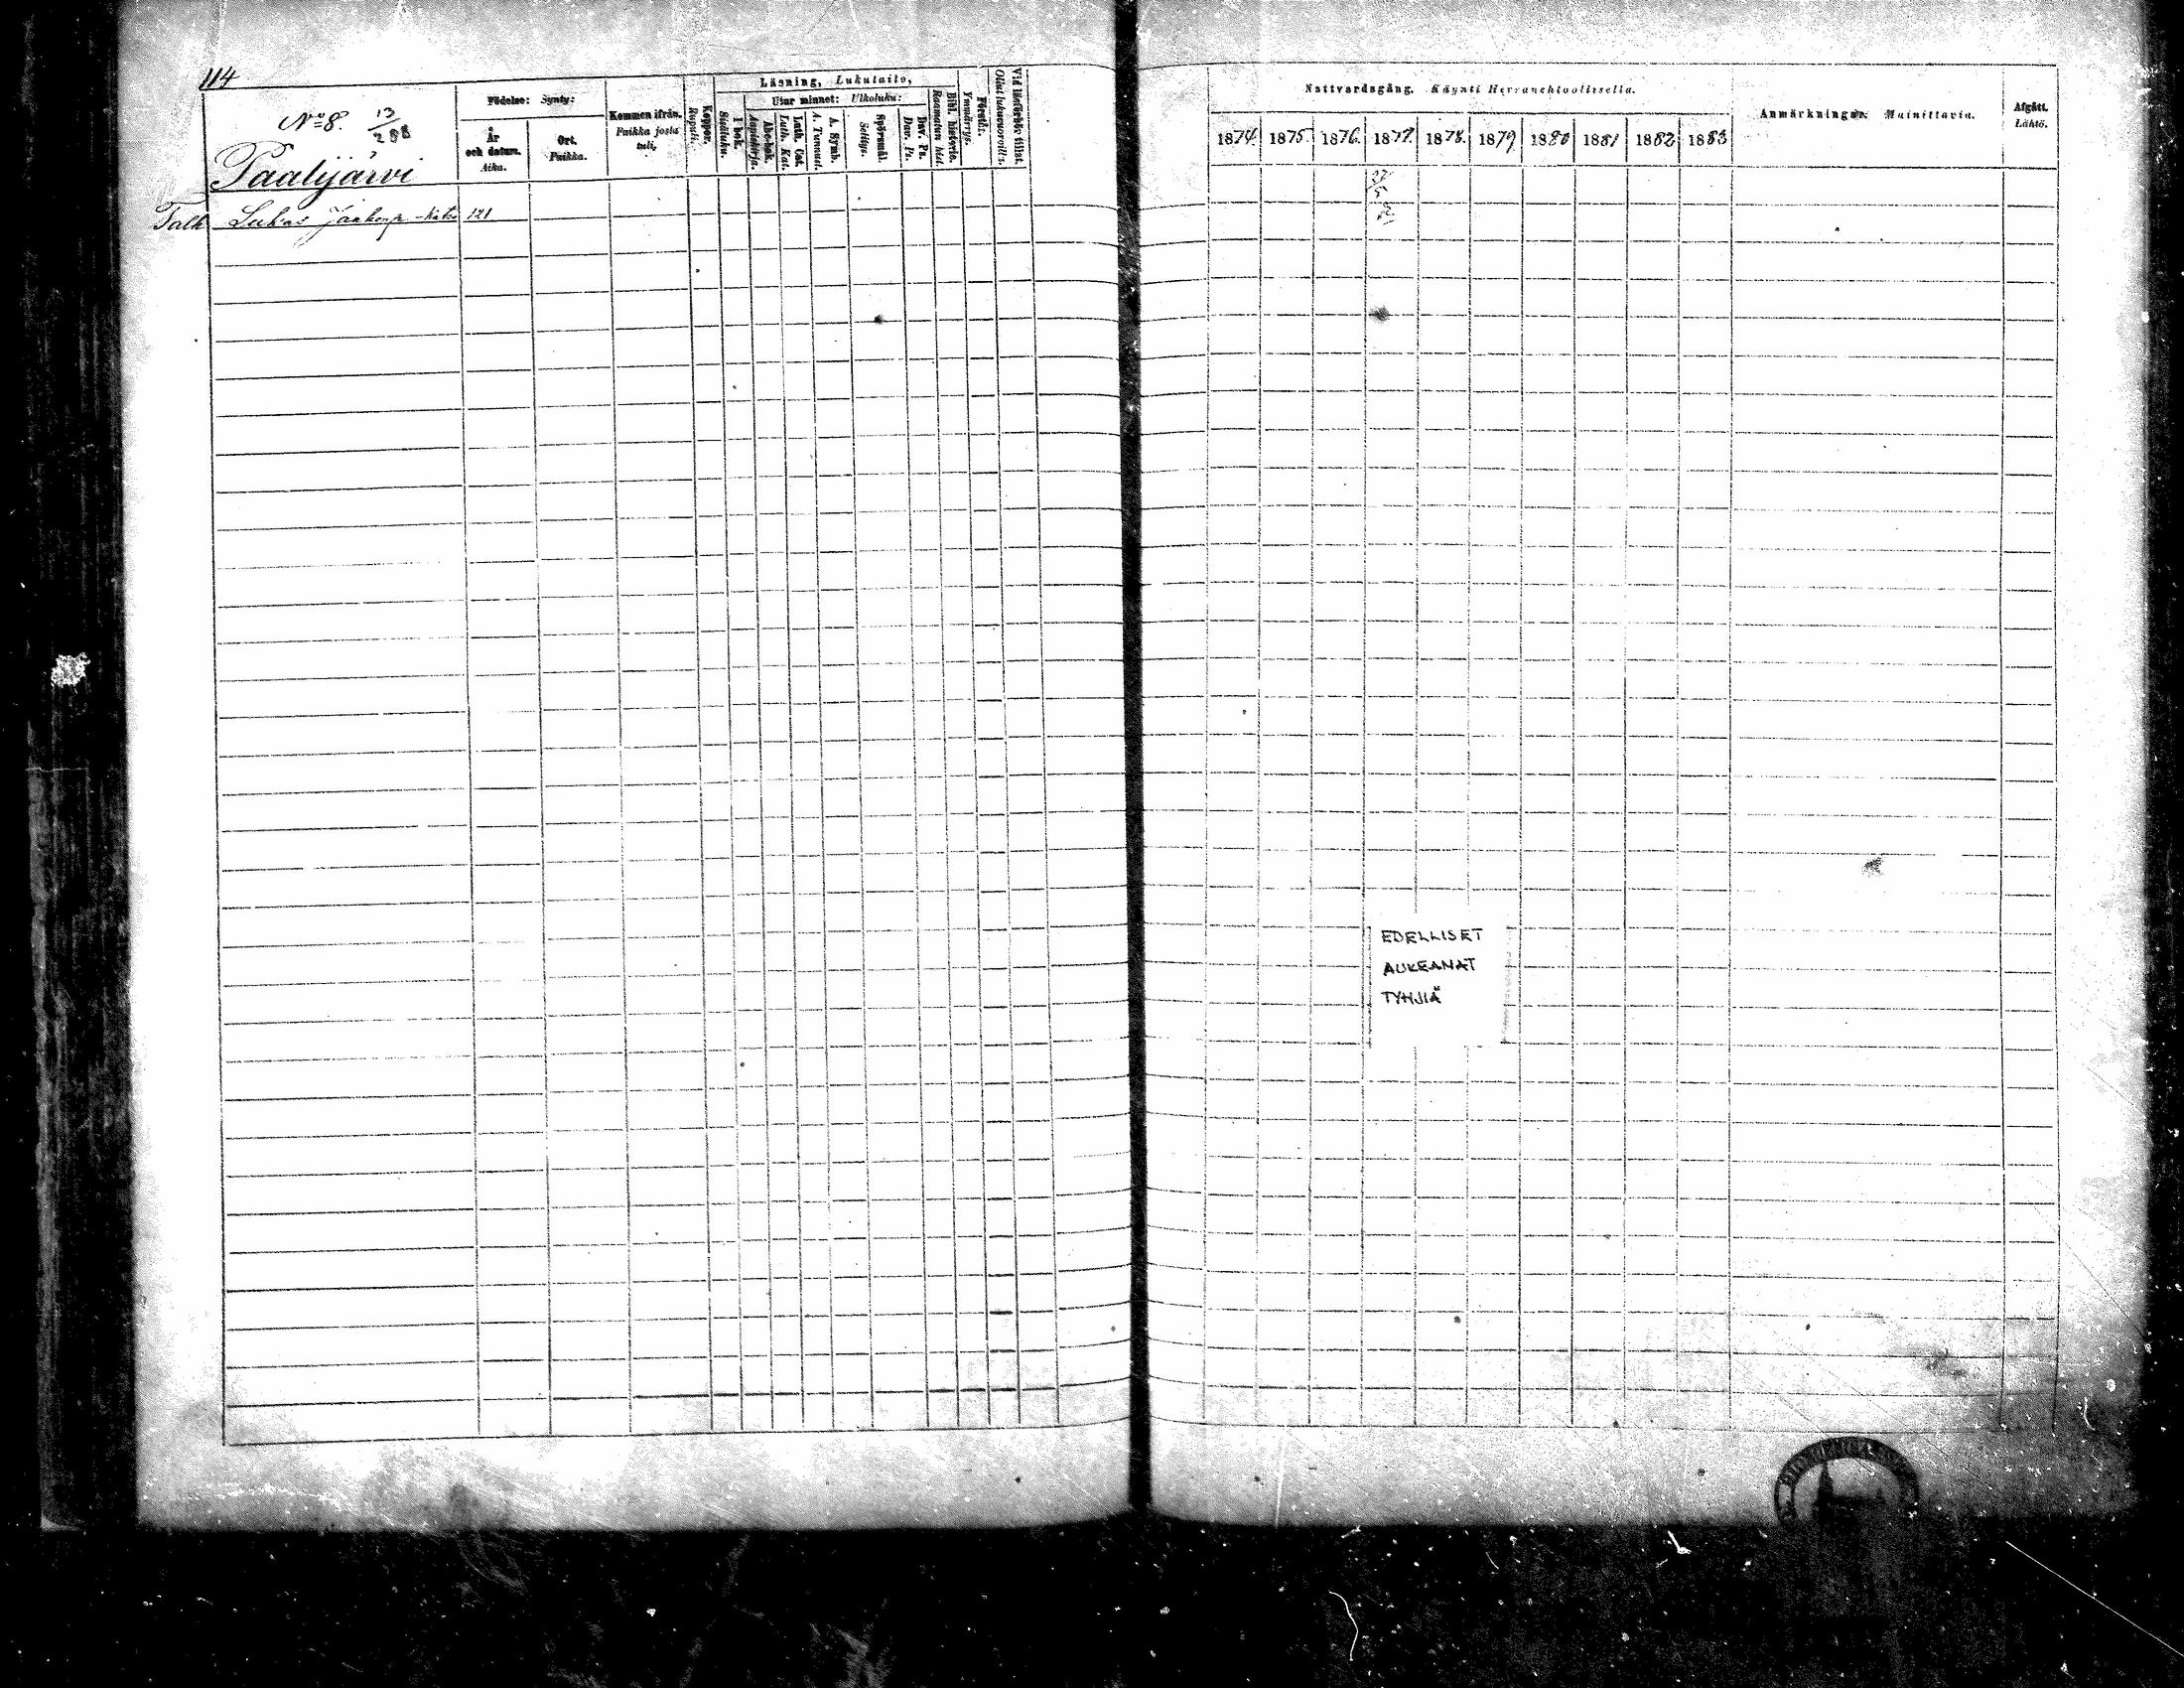 114
Nº 8. 13/208
Paalijärvi
Födelse: Synty:
År och datum. Aika.
Ort. Paikka.
Kommen ifrån. Paikka josta tuli.
Koppor. Rupuli.
Läsning, Lukutaito,
I bok. Sisäluku.
Utur minnet: Ulkoluku:
Abc-bok. Aapiskirja.
Luth. Cat. Luth. Kat.
A. Symb. A. Tunnust.
Spörsmål. Selitys.
Dav. Ps. Dav. Ps.
Bibl. historie. Raamatun hist.
Förstår. Ymmärrys.
Vid läsförhör tillst. Ollut lukuvuorolla.
Talk. Lukas Jaakonp. - Katso 121
Nattvardsgång. Käynti Herranehtoollisella.
1874. 1875. 1876. 1877. 1878. 1879 1880 1881 1882 1883
Anmärkningar. Mainittavia.
Afgått. Lähtö.
27/5
EDELLISET
AUKEAMAT
TYHJIÄ